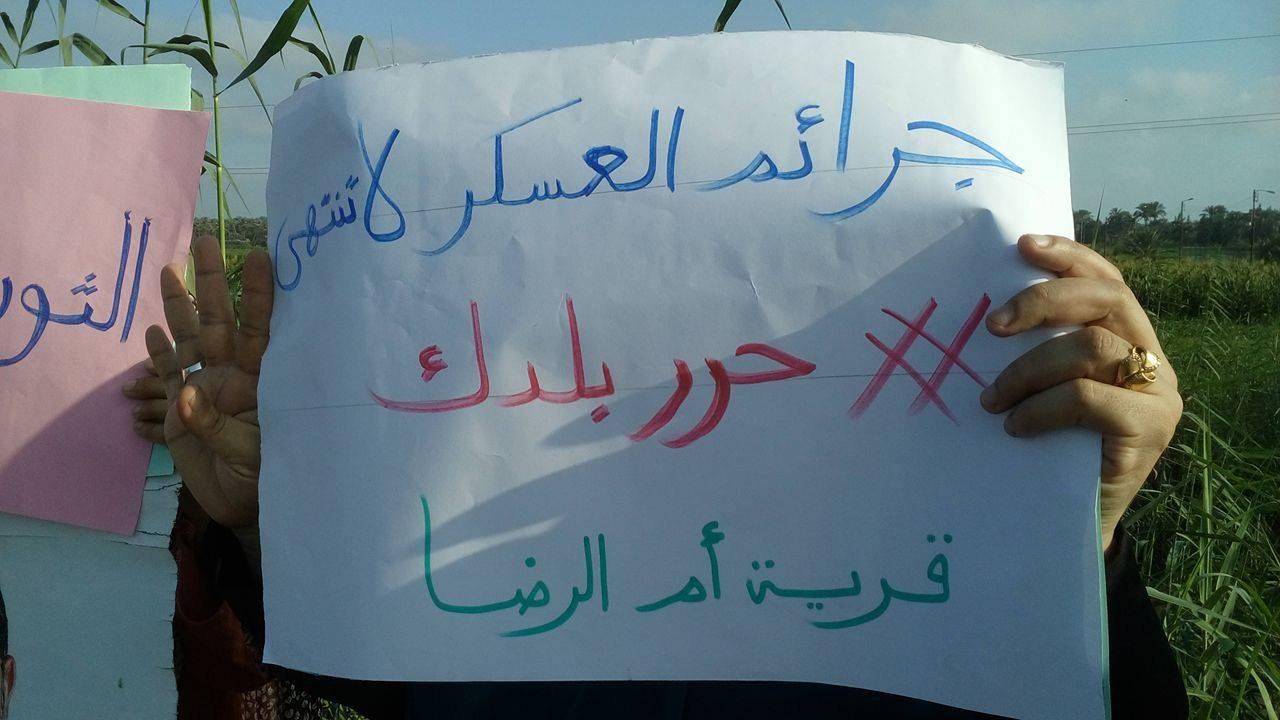 جرائم العسكر لا تنتهى
# حرر بلدك
قرية أم الرضا